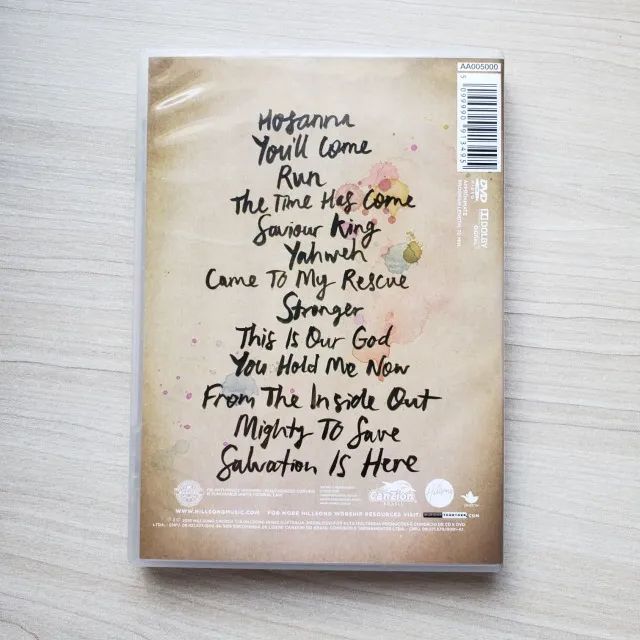 AA005000
Hosanna
You'll Come
Run
The Time Has Come
Saviour King
Yahweh
Came To My Rescue
Stronger
This Is Our God
You Hold Me Now
From The Inside Out
Mighty To Save
Salvation Is Here
DVD
DOLBY
DIGITAL
canzion
BRASIL
WWW.HILLSONGMUSIC.COM
FOR MORE HILLSONG WORSHIP RESOURCES VISIT